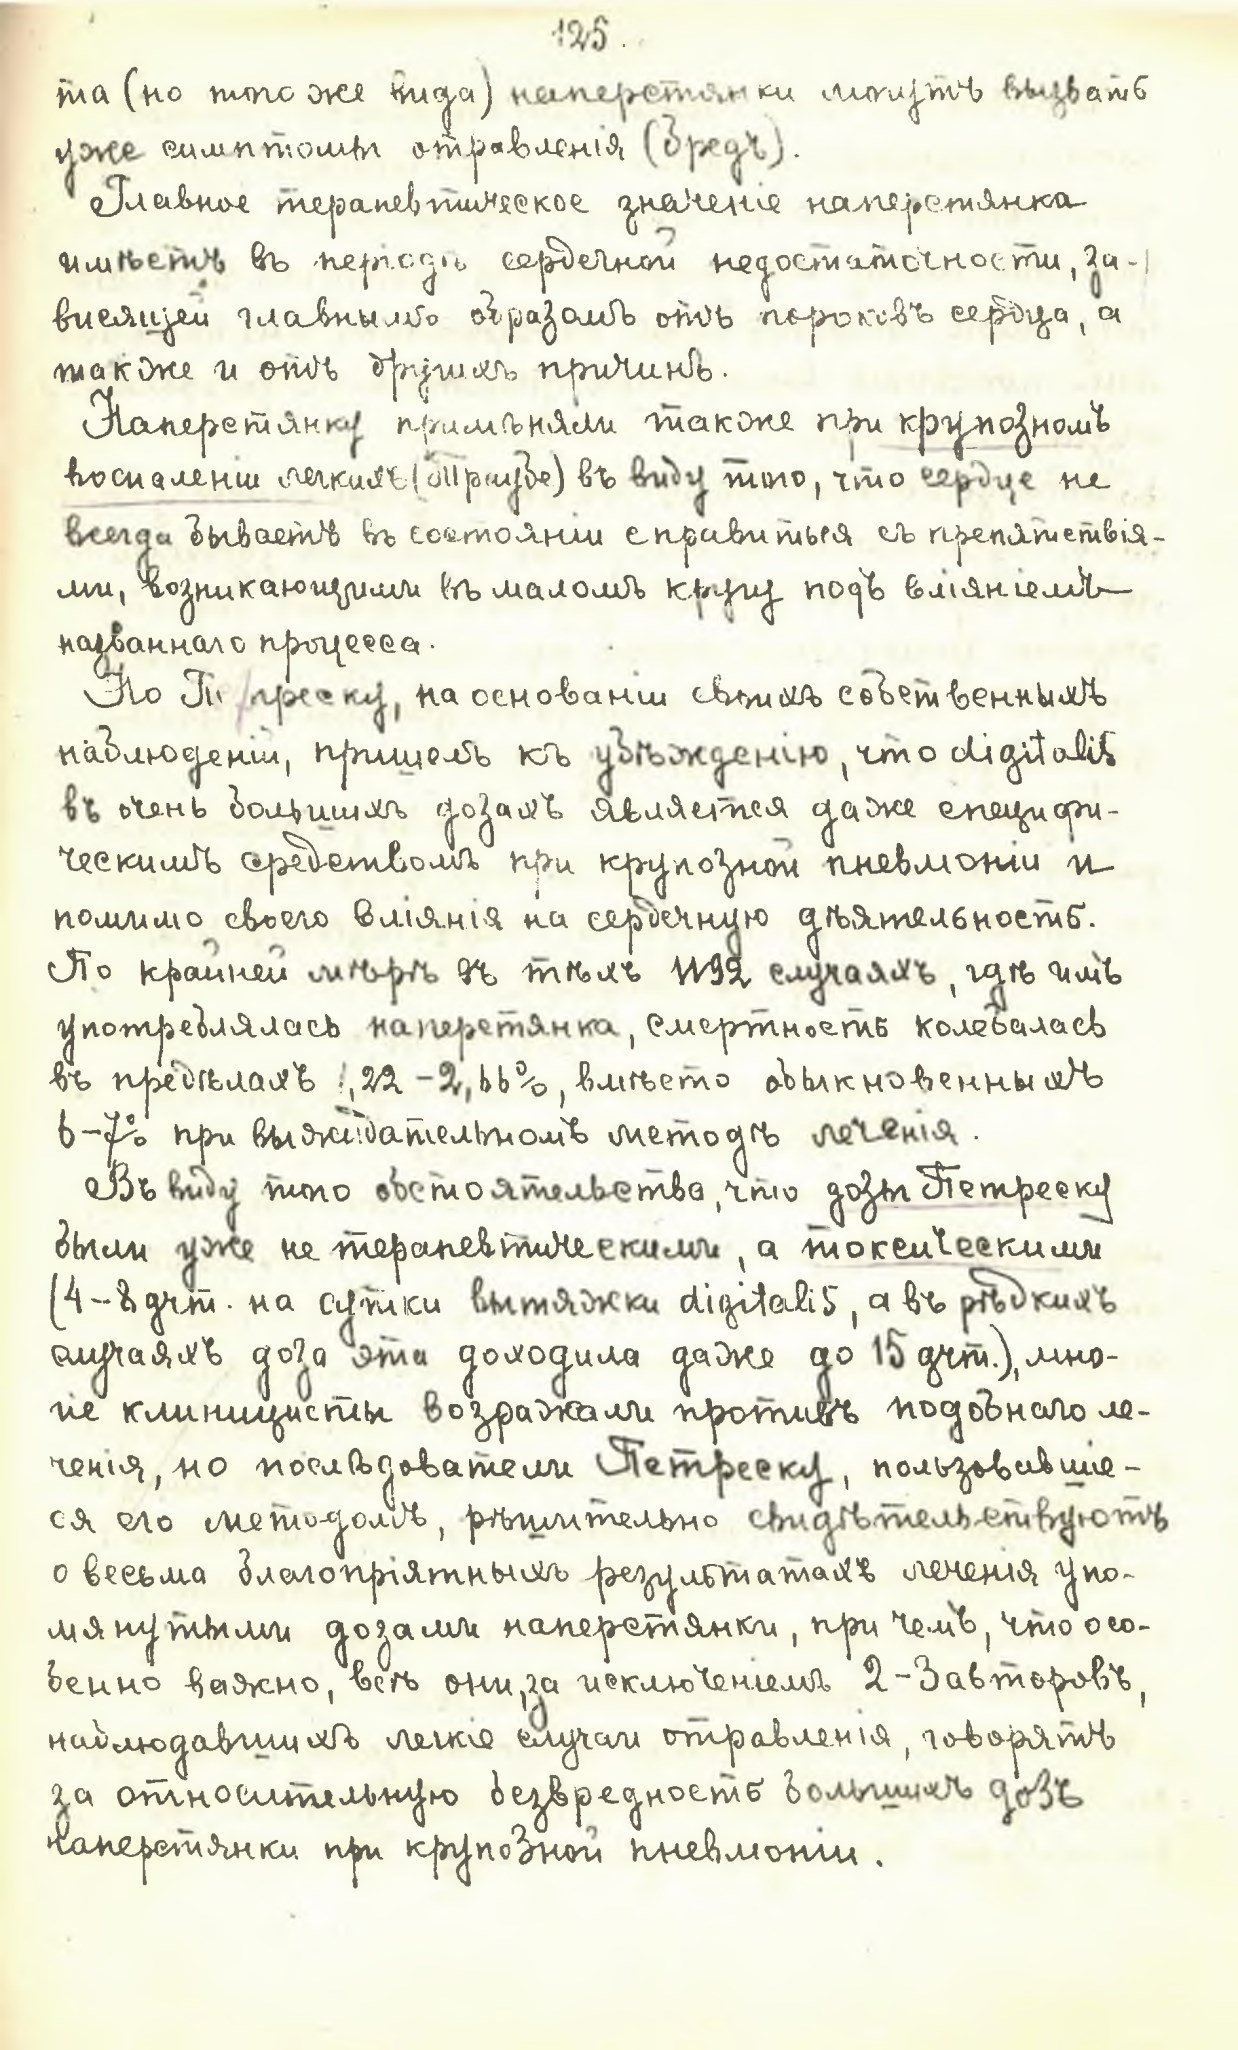 125.
та (но того же вида) наперстянки могутъ вызвать
уже симптомы отравленія (бредъ).
Главное терапевтическое значеніе наперстянка
имѣетъ въ періодѣ сердечной недостаточности, за-
висящей главнымъ образомъ отъ пороковъ сердца, а
также и отъ другихъ причинъ.
Наперстянку примѣняли также при крупозномъ
воспаленіи легкихъ (Траубе) въ виду того, что сердце не
всегда бываетъ въ состояніи справиться съ препятствія-
ми, возникающими въ маломъ кругу подъ вліяніемъ
названнаго процесса.
Но Петреску, на основаніи своихъ собственныхъ
наблюденій, пришелъ къ убѣжденію, что digitalis
въ очень большихъ дозахъ является даже специфи-
ческимъ средствомъ при крупозной пневмоніи и
помимо своего вліянія на сердечную дѣятельность.
По крайней мѣрѣ въ тѣхъ 1192 случаяхъ, гдѣ имъ
употреблялась наперстянка, смертность колебалась
въ предѣлахъ 1,22-2,66%, вмѣсто обыкновенныхъ
6-7% при выжидательномъ методѣ леченія.
Въ виду того обстоятельства, что дозы Петреску
были уже не терапевтическими, а токсическими
(4-8 grm. на сутки вытяжки digitalis, а въ рѣдкихъ
случаяхъ доза эта доходила даже до 15 grm.), мно-
гіе клиницисты возражали противъ подобнаго ле-
ченія, но послѣдователи Петреску, пользовавшіе-
ся его методомъ, рѣшительно свидѣтельствуютъ
о весьма благопріятныхъ результатахъ леченія упо-
мянутыми дозами наперстянки, при чемъ, что осо-
бенно важно, всѣ они, за исключеніемъ 2-3 авторовъ,
наблюдавшихъ легкіе случаи отравленія, говорятъ
за относительную безвредность большихъ дозъ
наперстянки при крупозной пневмоніи.